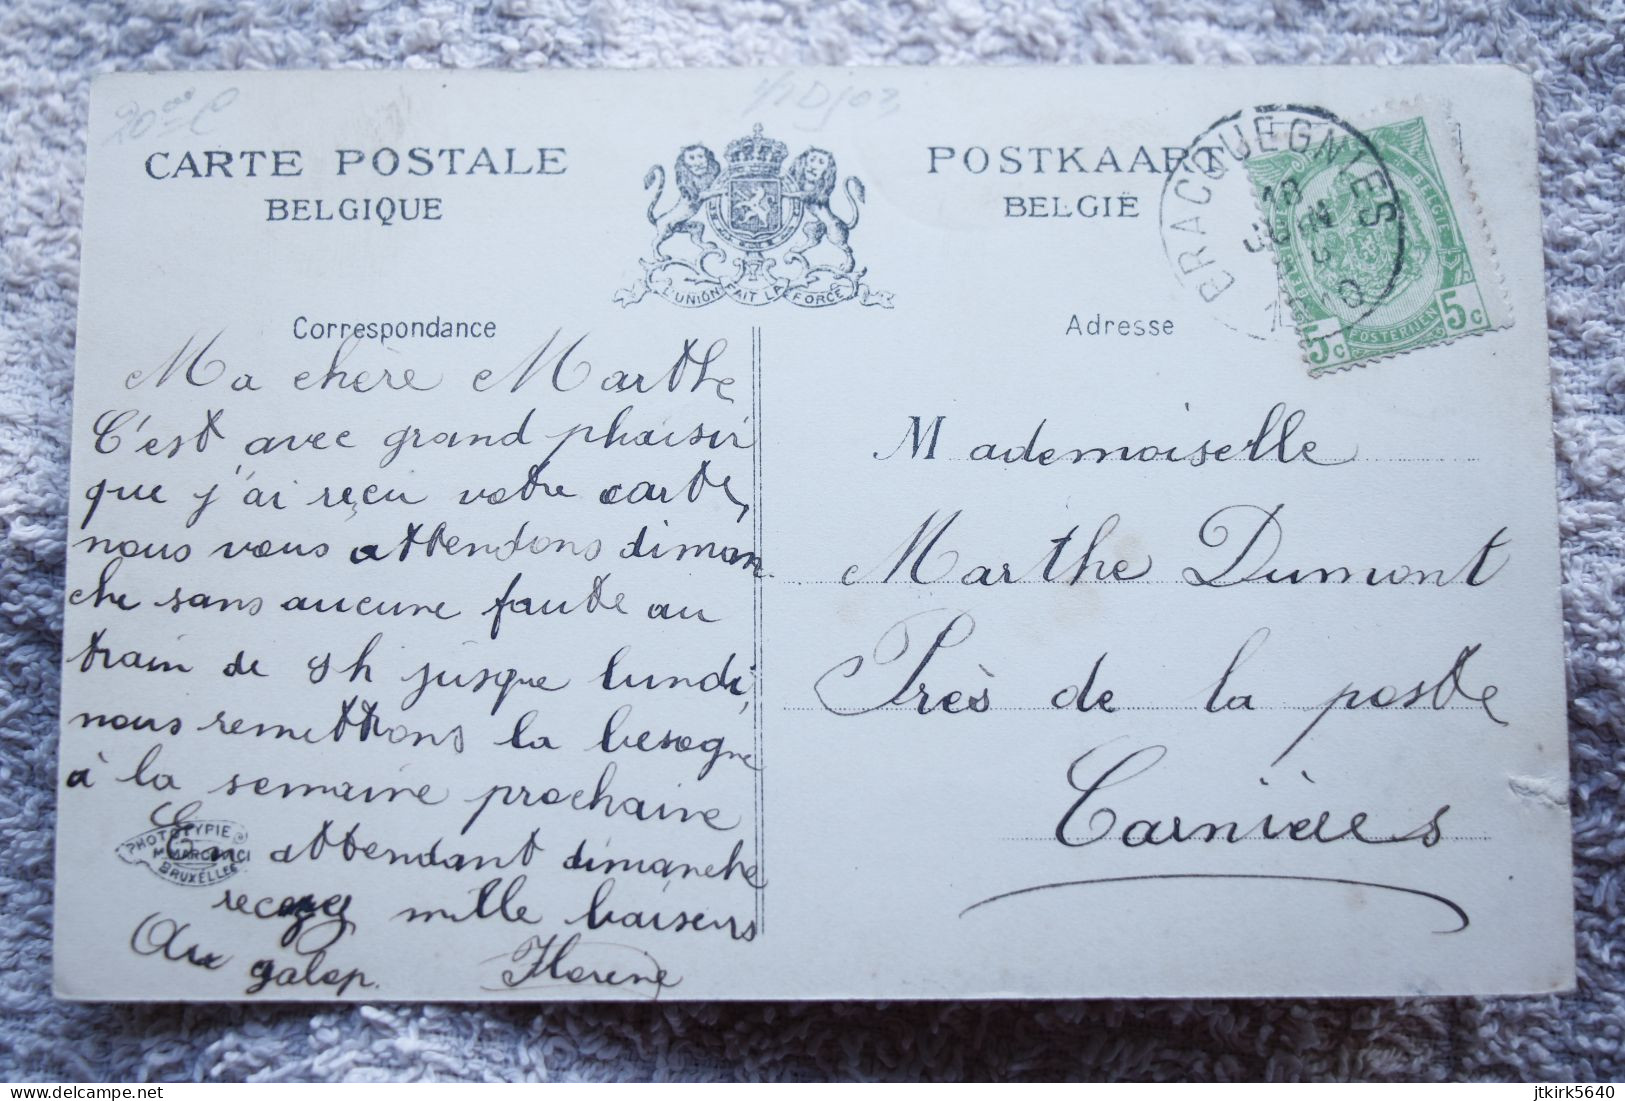 CARTE POSTALE
BELGIQUE
L'UNION FAIT LA FORCE
POSTKAART
BELGIË
BRACQUEGNIES
BELGIË
POSTERIJEN
5c 5c
Correspondance
Ma chère Marthe
C'est avec grand phaisir
que j'ai reçu votre carte,
nous vous attendons diman
che sans aucune faute au
train de 9h jusque lundi,
nous remettrons la besogne
à la semaine prochaine
En attendant dimanche
recevez mille baisers
Au galop. Florene
PHOTOTYPIE
MARCOVICI
BRUXELLES
Adresse
Mademoiselle
Marthe Dumont
Près de la poste
Carnières
jtkirk5640